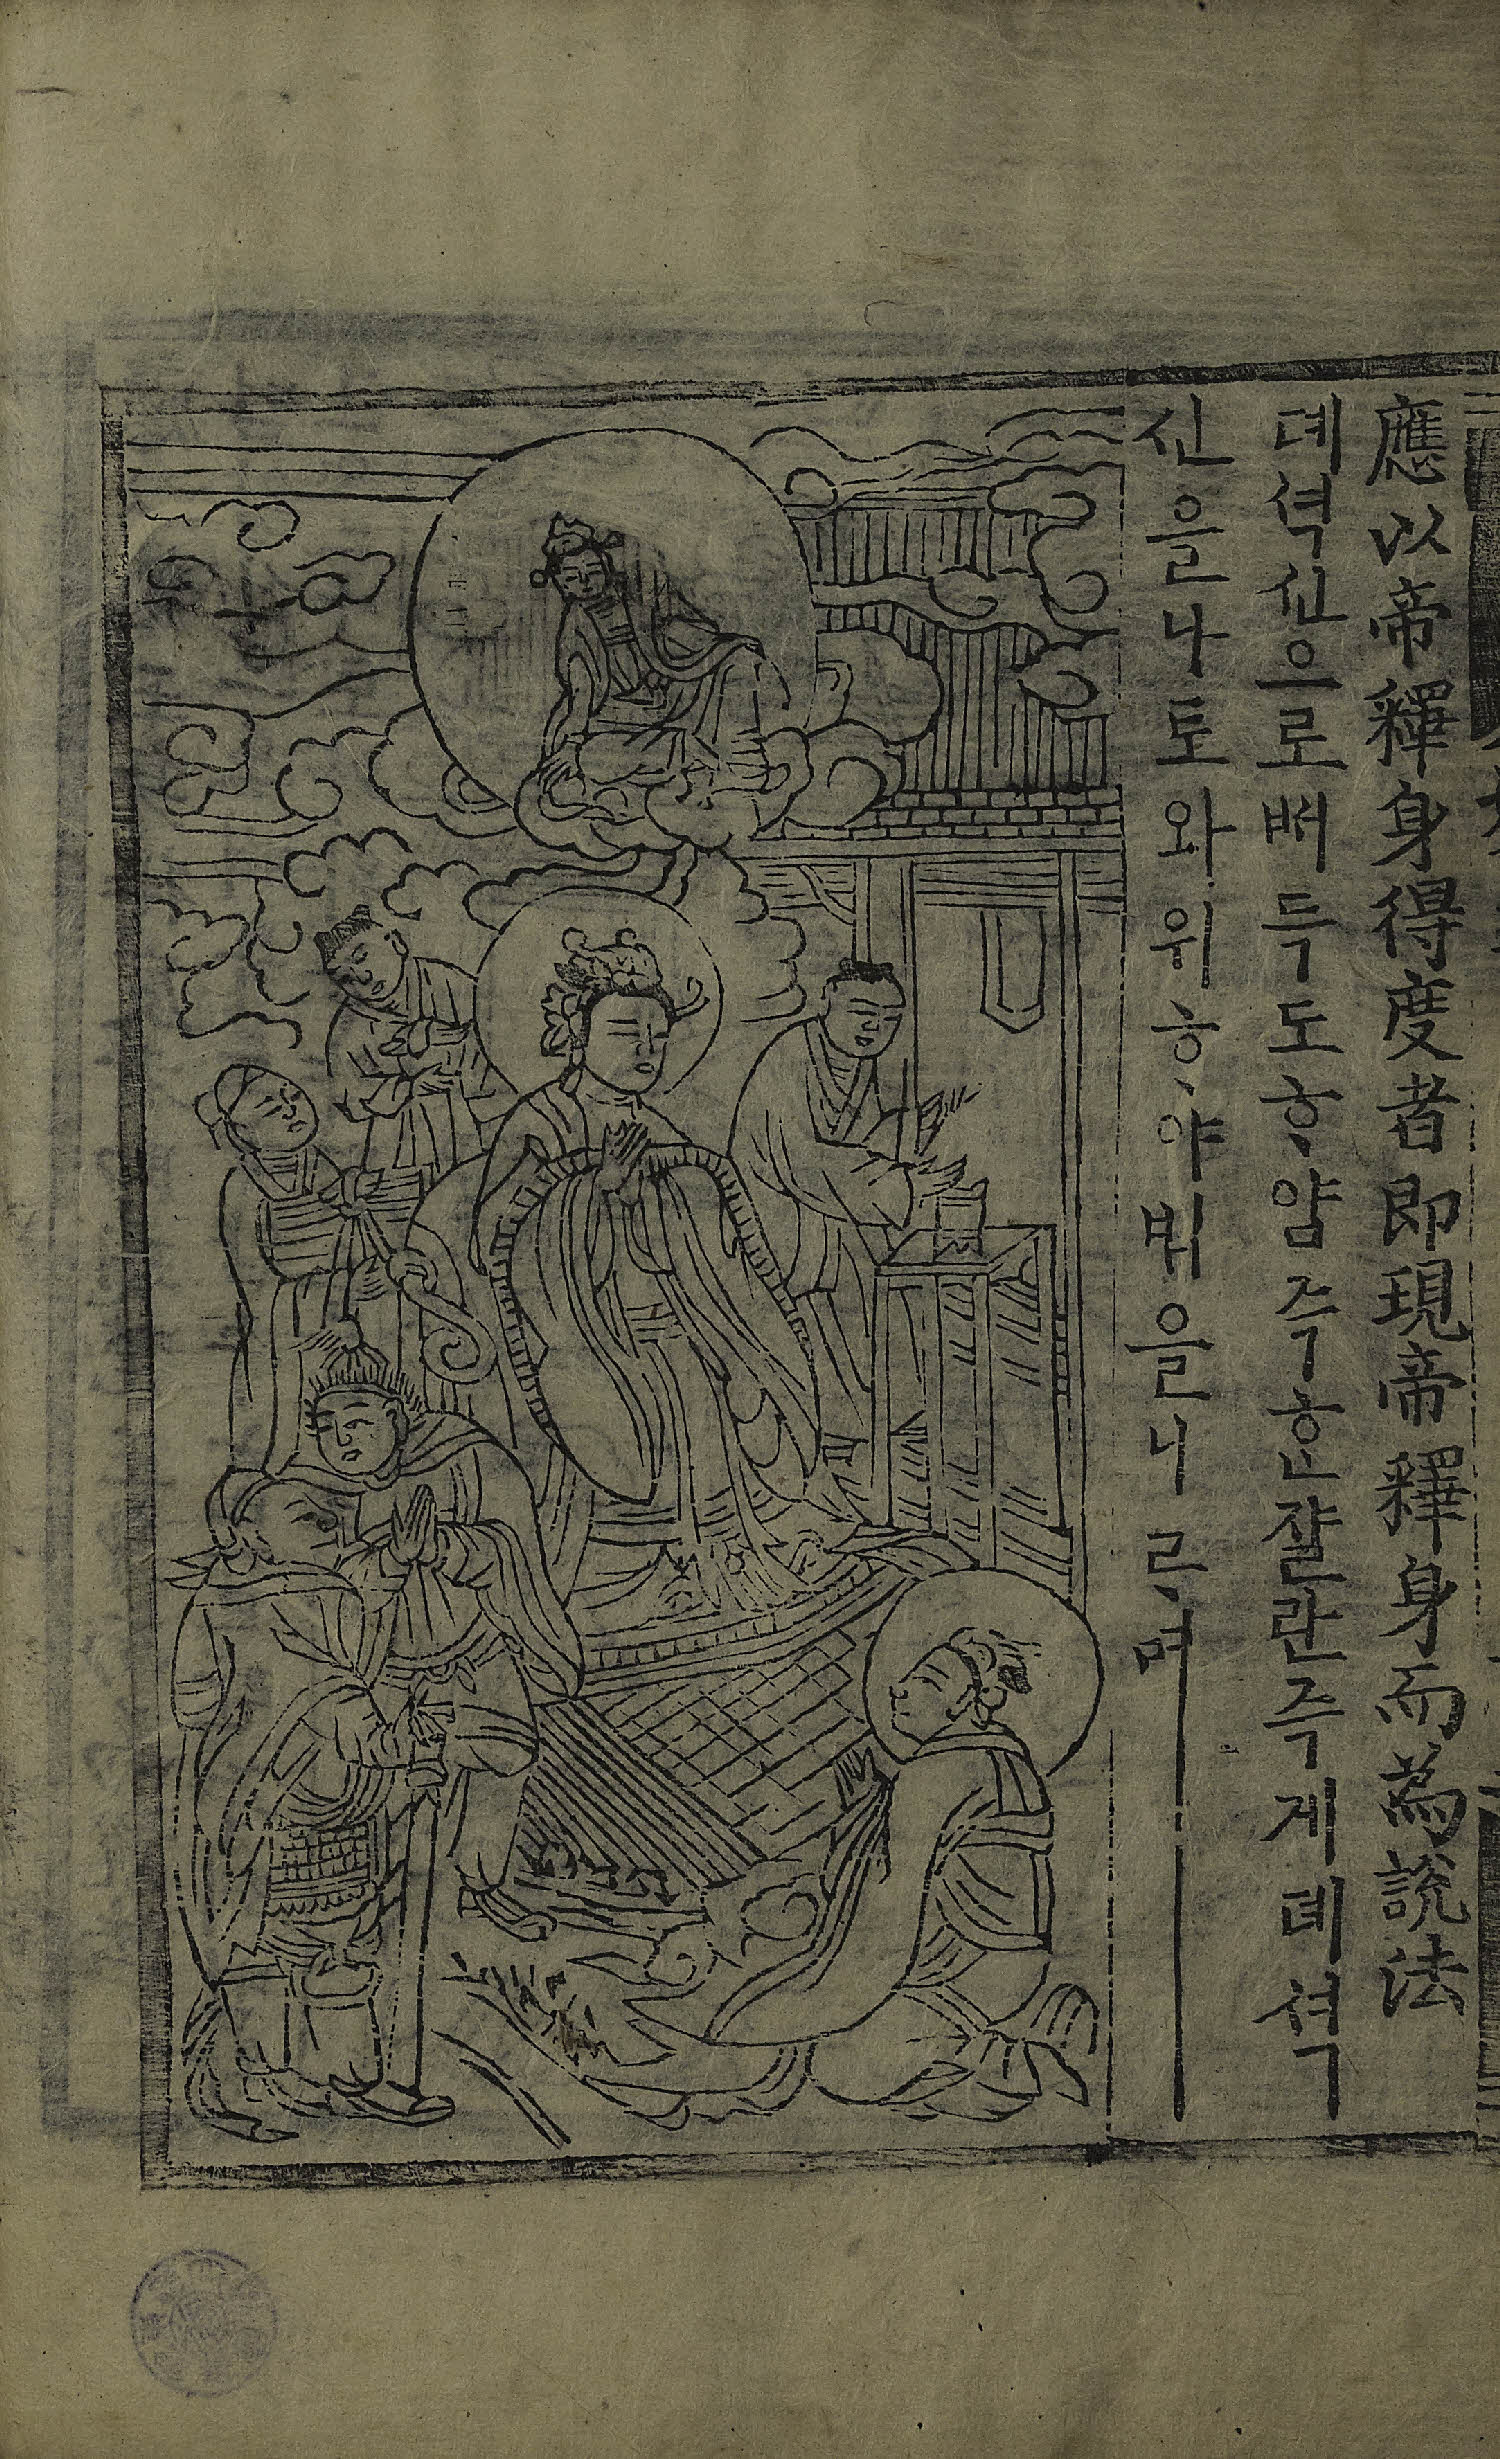 應以帝釋身得度者即現帝釋身而爲說法
뎨셕신으로버득도ᄒᆞ얌즉ᄒᆞᆫ쟐란즉게뎨셕
신을나토와위ᄒᆞ야법을니ᄅᆞ며